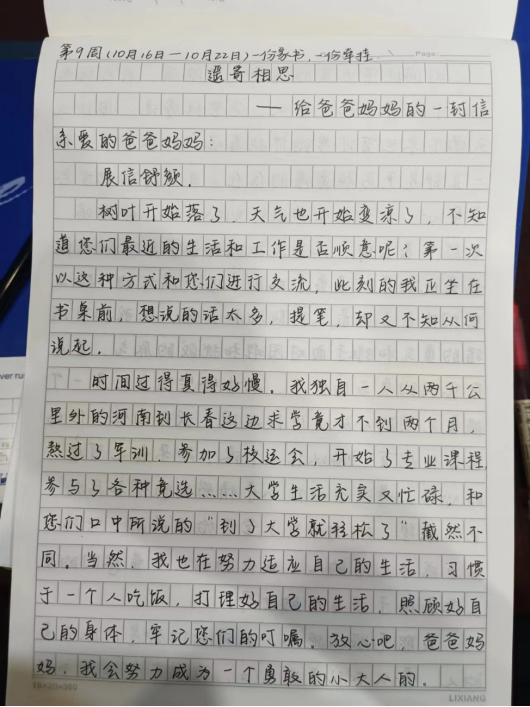 第9周(10月16日—10月22日)一份家书,一份牵挂.
Page:
遥寄相思
——给爸爸妈妈的一封信
亲爱的爸爸妈妈:
展信舒颜.
树叶开始落了.天气也开始变凉了,不知
道您们最近的生活和工作是否顺意呢?第一次
以这种方式和您们进行交流,此刻的我正坐在
书桌前,想说的话太多,提笔,却又不知从何
说起.
时间过得真得好慢.我独自一人从两千公
里外的河南到长春这边求学竟才不到两个月,
熬过了军训.参加了校运会,开始了专业课程,
参与了各种竞选……大学生活充实又忙碌,和
您们口中所说的“到了大学就轻松了”截然不
同.当然,我也在努力适应自己的生活,习惯
于一个人吃饭,打理好自己的生活,照顾好自
己的身体.牢记您们的叮嘱.放心吧,爸爸妈
妈.我会努力成为一个勇敢的小大人的.
LIXIANG